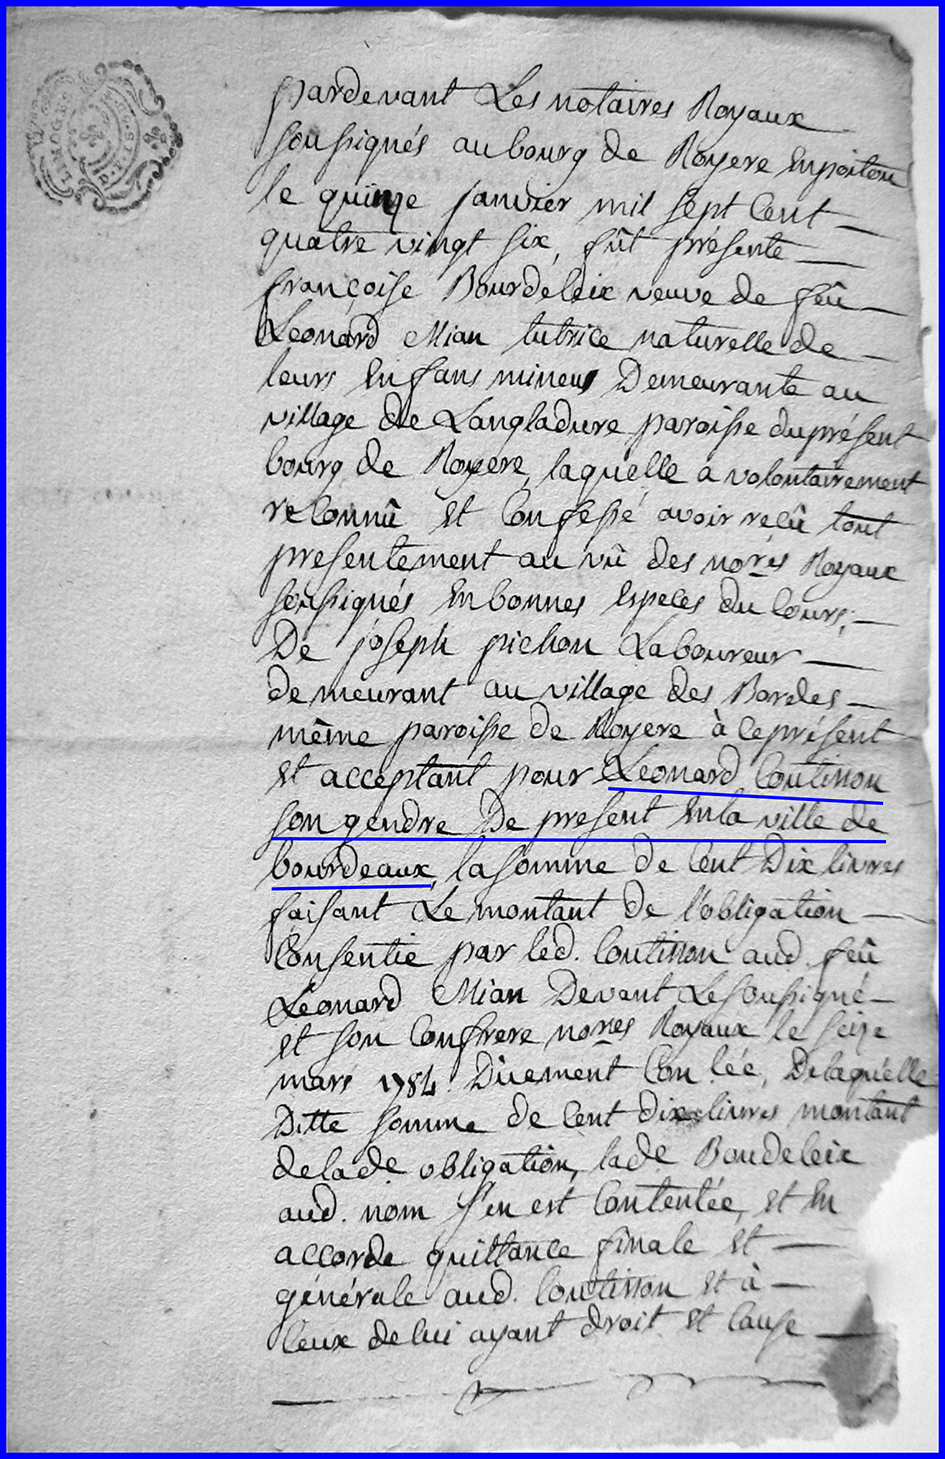 pardevant Les notaires Royaux
soussignés au bourg de Royere Enpoitou
le quinze janvier mil sept Cent
quatre vingt six, fût présente
françoise Bourdeleix veuve de feû
Leonard Mian tutrice naturelle de
leurs Enfans mineurs Demeurante au
village de Langladure paroisse duprésent
bourg de Royere, laquelle a volontairement
reconnû Et Confessé avoir recû tout
presentement au vû des nores Royaux
soussignés Enbonnes Especes du Cours,
De joseph pichon Laboureur
demeurant au village des Bordes
même paroisse de Royere à ceprésent
Et acceptant pour Leonard Coutisson
son gendre De present Enla ville de
bourdeaux, la somme de Cent Dix livres
faisant Le montant de l'obligation
Consentie par led. Coutisson aud. feû
Léonard Mian Devant Le soussigné
Et son Confrere nores Royaux le seize
mars 1784 Duement Con lée, Delaquelle
Ditte somme de Cent dix livres montant
delade obligation, lade Boudeleix
aud. nom s'en est Contentée, Et En
accorde quittance finale Et
générale aud. Coutisson Et à
Ceux delui ayant droit Et Cause